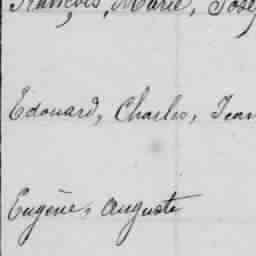 François, Marie, Jose
Edouard, Charles, Jean
Eugène, Auguste